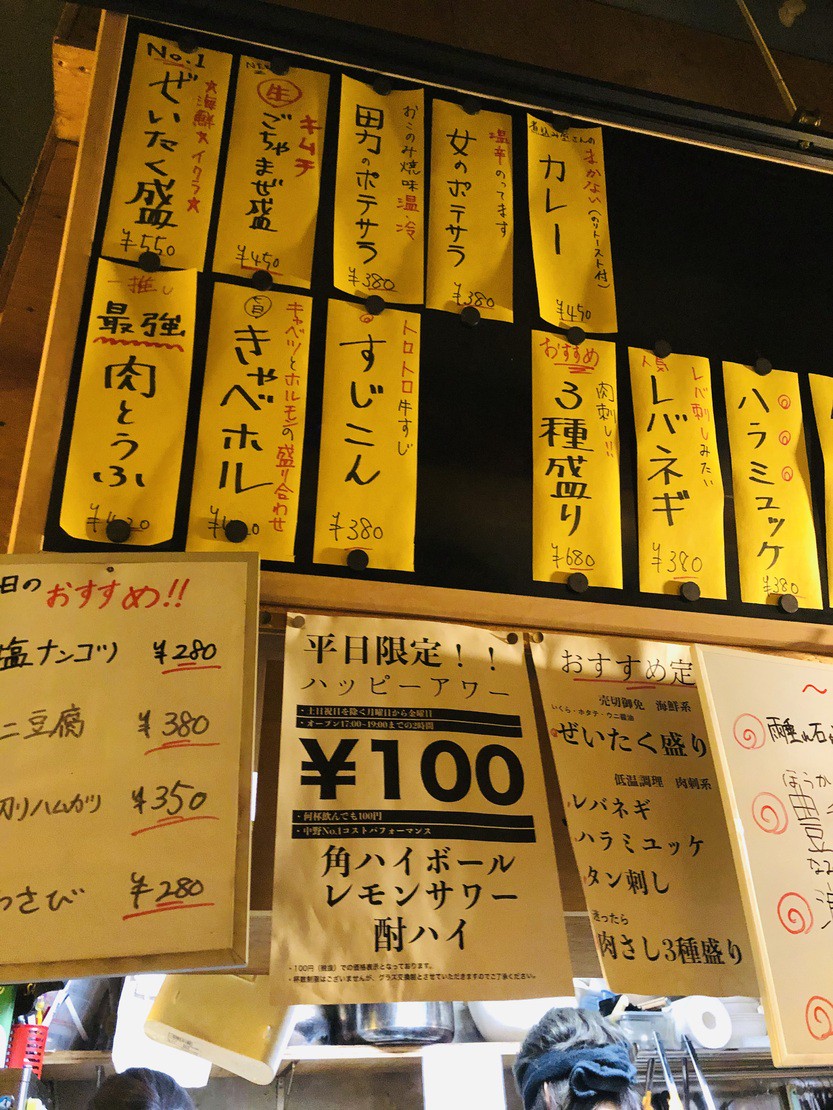 No.1
ぜいたく盛
★海鮮★イクラ★
¥550
生
ごちゃまぜ盛
キムチ
¥450
男のポテサラ
おこのみ焼味 温・冷
¥380
女のポテサラ
温辛のってます
¥380
煮込み屋さんの
カレー
すかない(のりトースト付)
¥450
一推し
最強
肉とうふ
きゃベホル
キャベツとホルモンの盛り合わせ
すじこん
トロトロ牛すじ
¥380
おすすめ
3種盛り
肉刺し!!
¥680
人気
レバネギ
レバ刺しみたい
¥380
ハラミユッケ
¥380
日のおすすめ!!
塩ナンコツ ¥280
ニ豆腐 ¥380
切りハムカツ ¥350
わさび ¥280
平日限定！！
ハッピーアワー
・土日祝日を除く月曜日から金曜日
・オープン17:00~19:00までの2時間
¥100
・何杯飲んでも100円
・中野No.1コストパフォーマンス
角ハイボール
レモンサワー
酎ハイ
・100円（税抜）での価格表示となっております。
・杯数制限はございませんが、グラス交換制とさせていただきますのでご了承ください。
おすすめ定
売切御免 海鮮系
いくら・ホタテ・ウニ醤油
ぜいたく盛り
低温調理 肉刺系
レバネギ
ハラミユッケ
タン刺し
迷ったら
肉さし3種盛り